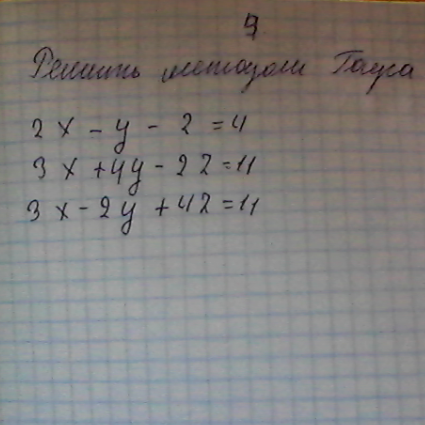 9
Решить методом Гауса
2x - y - z = 4
3x + 4y - 2z = 11
3x - 2y + 4z = 11